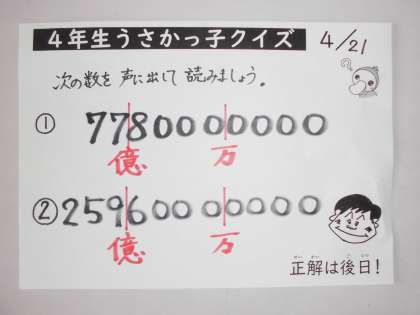 4年生うさかっ子クイズ 4/21
次の数を声に出して読みましょう。
① 7780000000
億 万
② 25960000000
億 万
正解は後日!